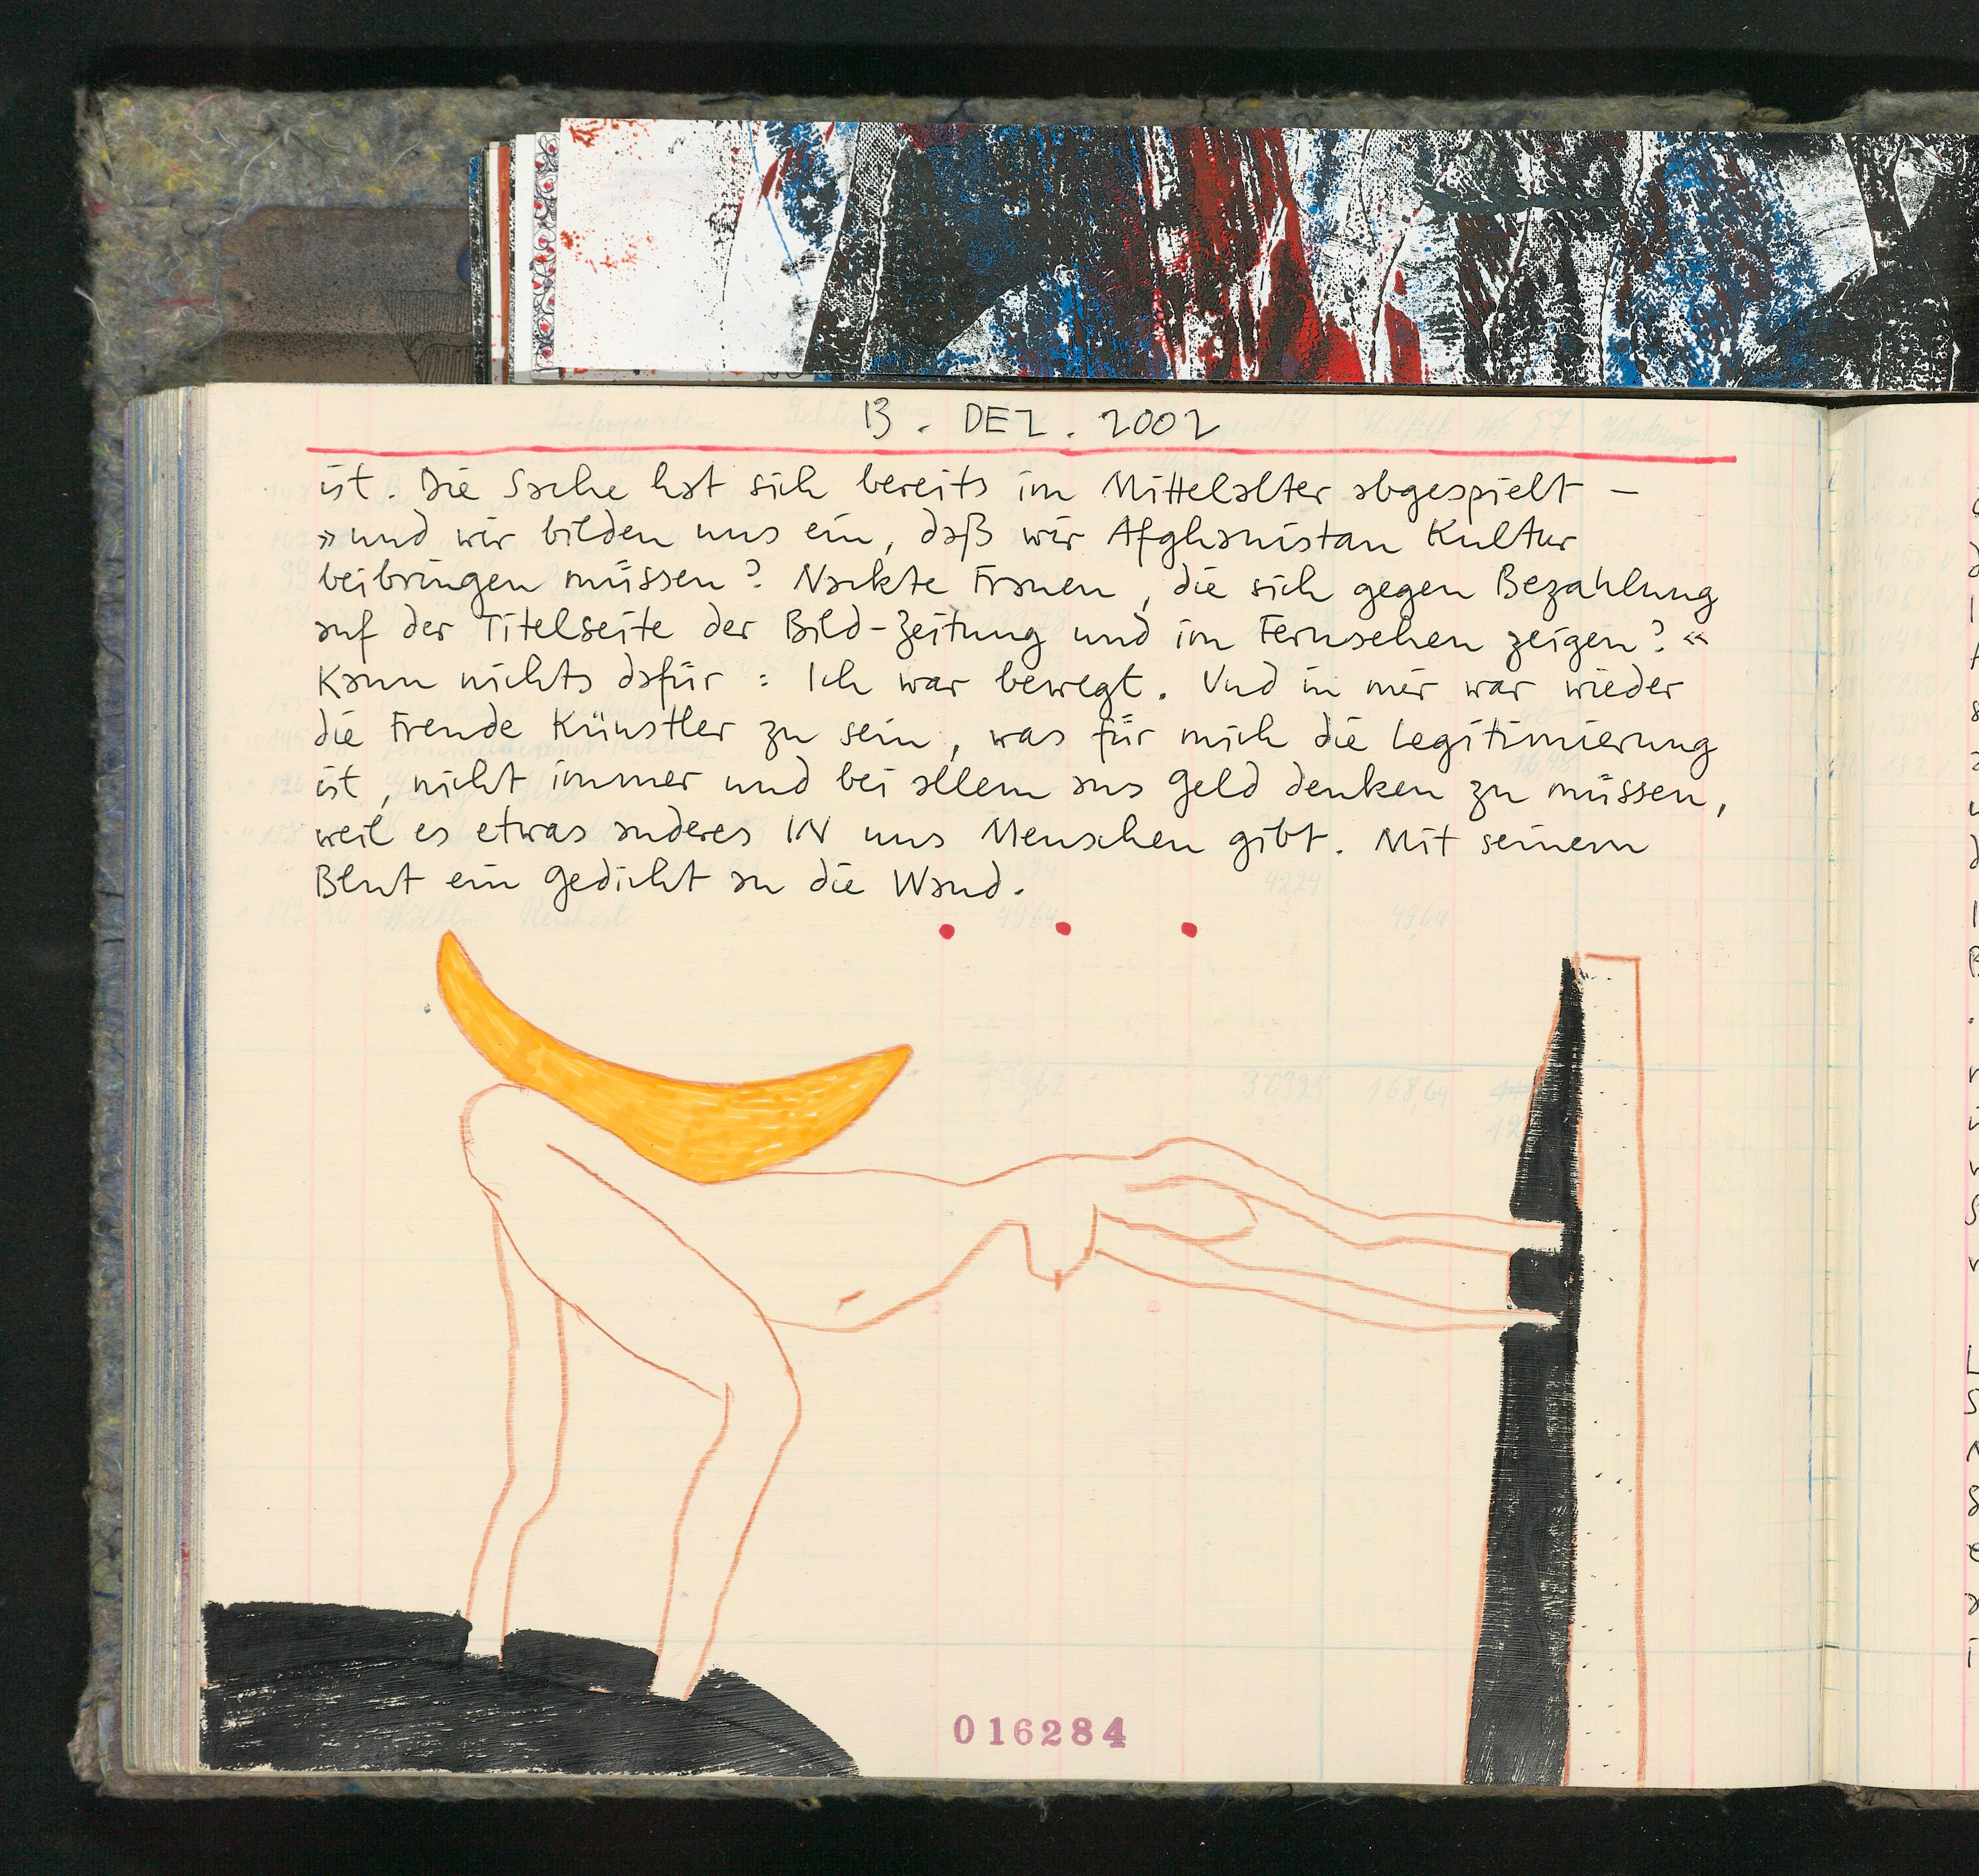 13. DEZ. 2002
ist. Die Sache hat sich bereits im Mittelalter abgespielt –
»und wir bilden uns ein, daß wir Afghanistan Kultur
beibringen müssen? Nackte Frauen, die sich gegen Bezahlung
auf der Titelseite der Bild-Zeitung und im Fernsehen zeigen?«
Kann nichts dafür: Ich war bewegt. Und in mir war wieder
die Freude Künstler zu sein, was für mich die Legitimierung
ist, nicht immer und bei allem ans Geld denken zu müssen,
weil es etwas anderes IN uns Menschen gibt. Mit seinem
Blut ein Gedicht an die Wand.
016284